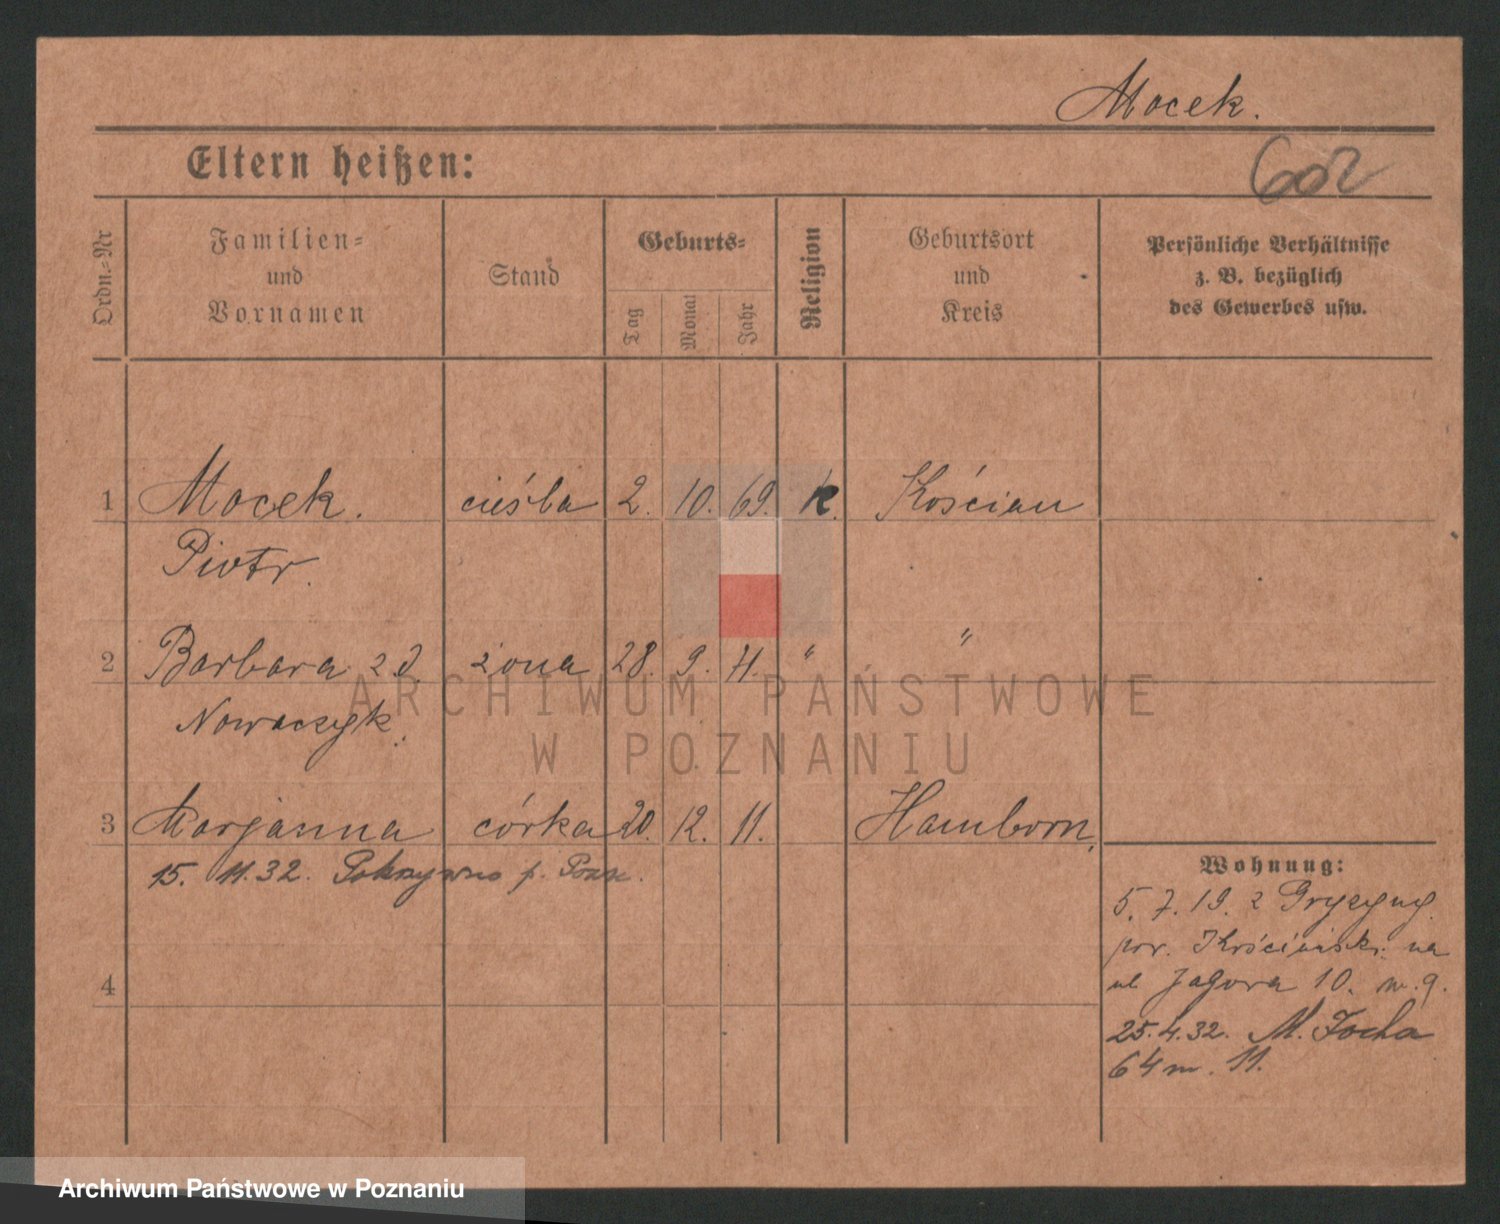 Mocek.
Eltern heißen:
602
Ordn.-Nr
Familien-
und
Vornamen
Stand
Geburts-
Tag
Monat
Jahr
Religion
Geburtsort
und
Kreis
Persönliche Verhältnisse
z. B. bezüglich
des Gewerbes usw.
1 Mocek. cieśla 2. 10. 69. k. Kościan
Piotr.
2 Barbara z d. żona 28. 9. 71. " "
Nowaczyk.
ARCHIWUM PAŃSTWOWE
W POZNANIU
3 Marjanna córka 20. 12. 11. Hamborn.
15. 11. 32. Pokrzywno p. Pozn.
Wohnung:
5. 7. 19. z Gryzyny
pow. na
ul 10. m. 9.
25.4.32. M. Focha
64 m. 11.
4
Archiwum Państwowe w Poznaniu